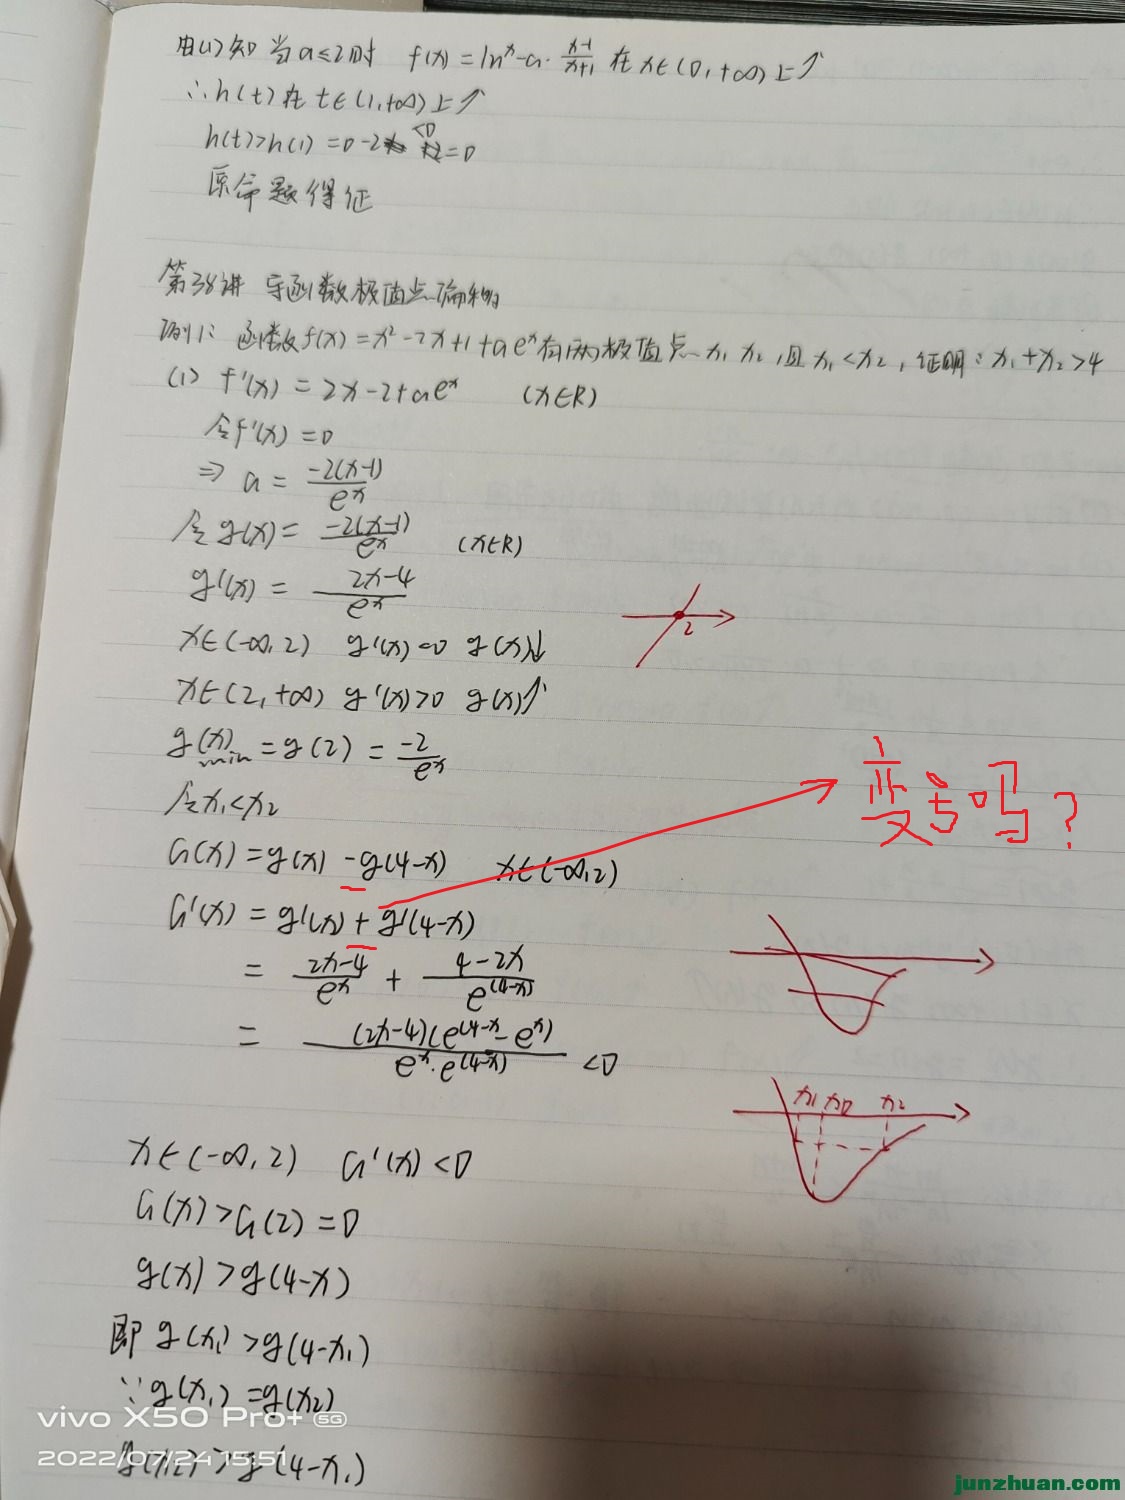 由(1)知 当a≤2时 f(x)=ln^x-a·\frac{x-1}{x+1} 在x∈(0,+∞)上↗
∴h(t)在t∈(1,+∞)上↗
h(t)>h(1)=0-2 =0
原命题得证
第38讲 导函数极值点偏移
例1: 函数f(x)=x²-2x+1+ae^x有两极值点x₁ x₂,且x₁<x₂,证明:x₁+x₂>4
(1) f'(x)=2x-2+ae^x (x∈R)
令f'(x)=0
⇒ a=\frac{-2(x-1)}{e^x}
令g(x)=\frac{-2(x-1)}{e^x} (x∈R)
g'(x)=\frac{2x-4}{e^x}
2
x∈(-∞,2) g'(x)<0 g(x)↓
x∈(2,+∞) g'(x)>0 g(x)↗
g(x)min=g(2)=\frac{-2}{e^x}
变号吗?
令x₁<x₂
G(x)=g(x)-g(4-x) x∈(-∞,2)
G'(x)=g'(x)+g'(4-x)
=\frac{2x-4}{e^x}+\frac{4-2x}{e^{(4-x)}}
=\frac{(2x-4)(e^{(4-x}-e^x)}{e^x·e^{(4-x)}}<0
x₁ x₀ x₂
x∈(-∞,2) G'(x)<0
G(x)>G(2)=0
g(x)>g(4-x)
即 g(x₁)>g(4-x₁)
∵g(x₁)=g(x₂)
g(x₂)>g(4-x₁)
vivo X50 Pro+ 5G
2022/07/24 15:51
junzhuan.com